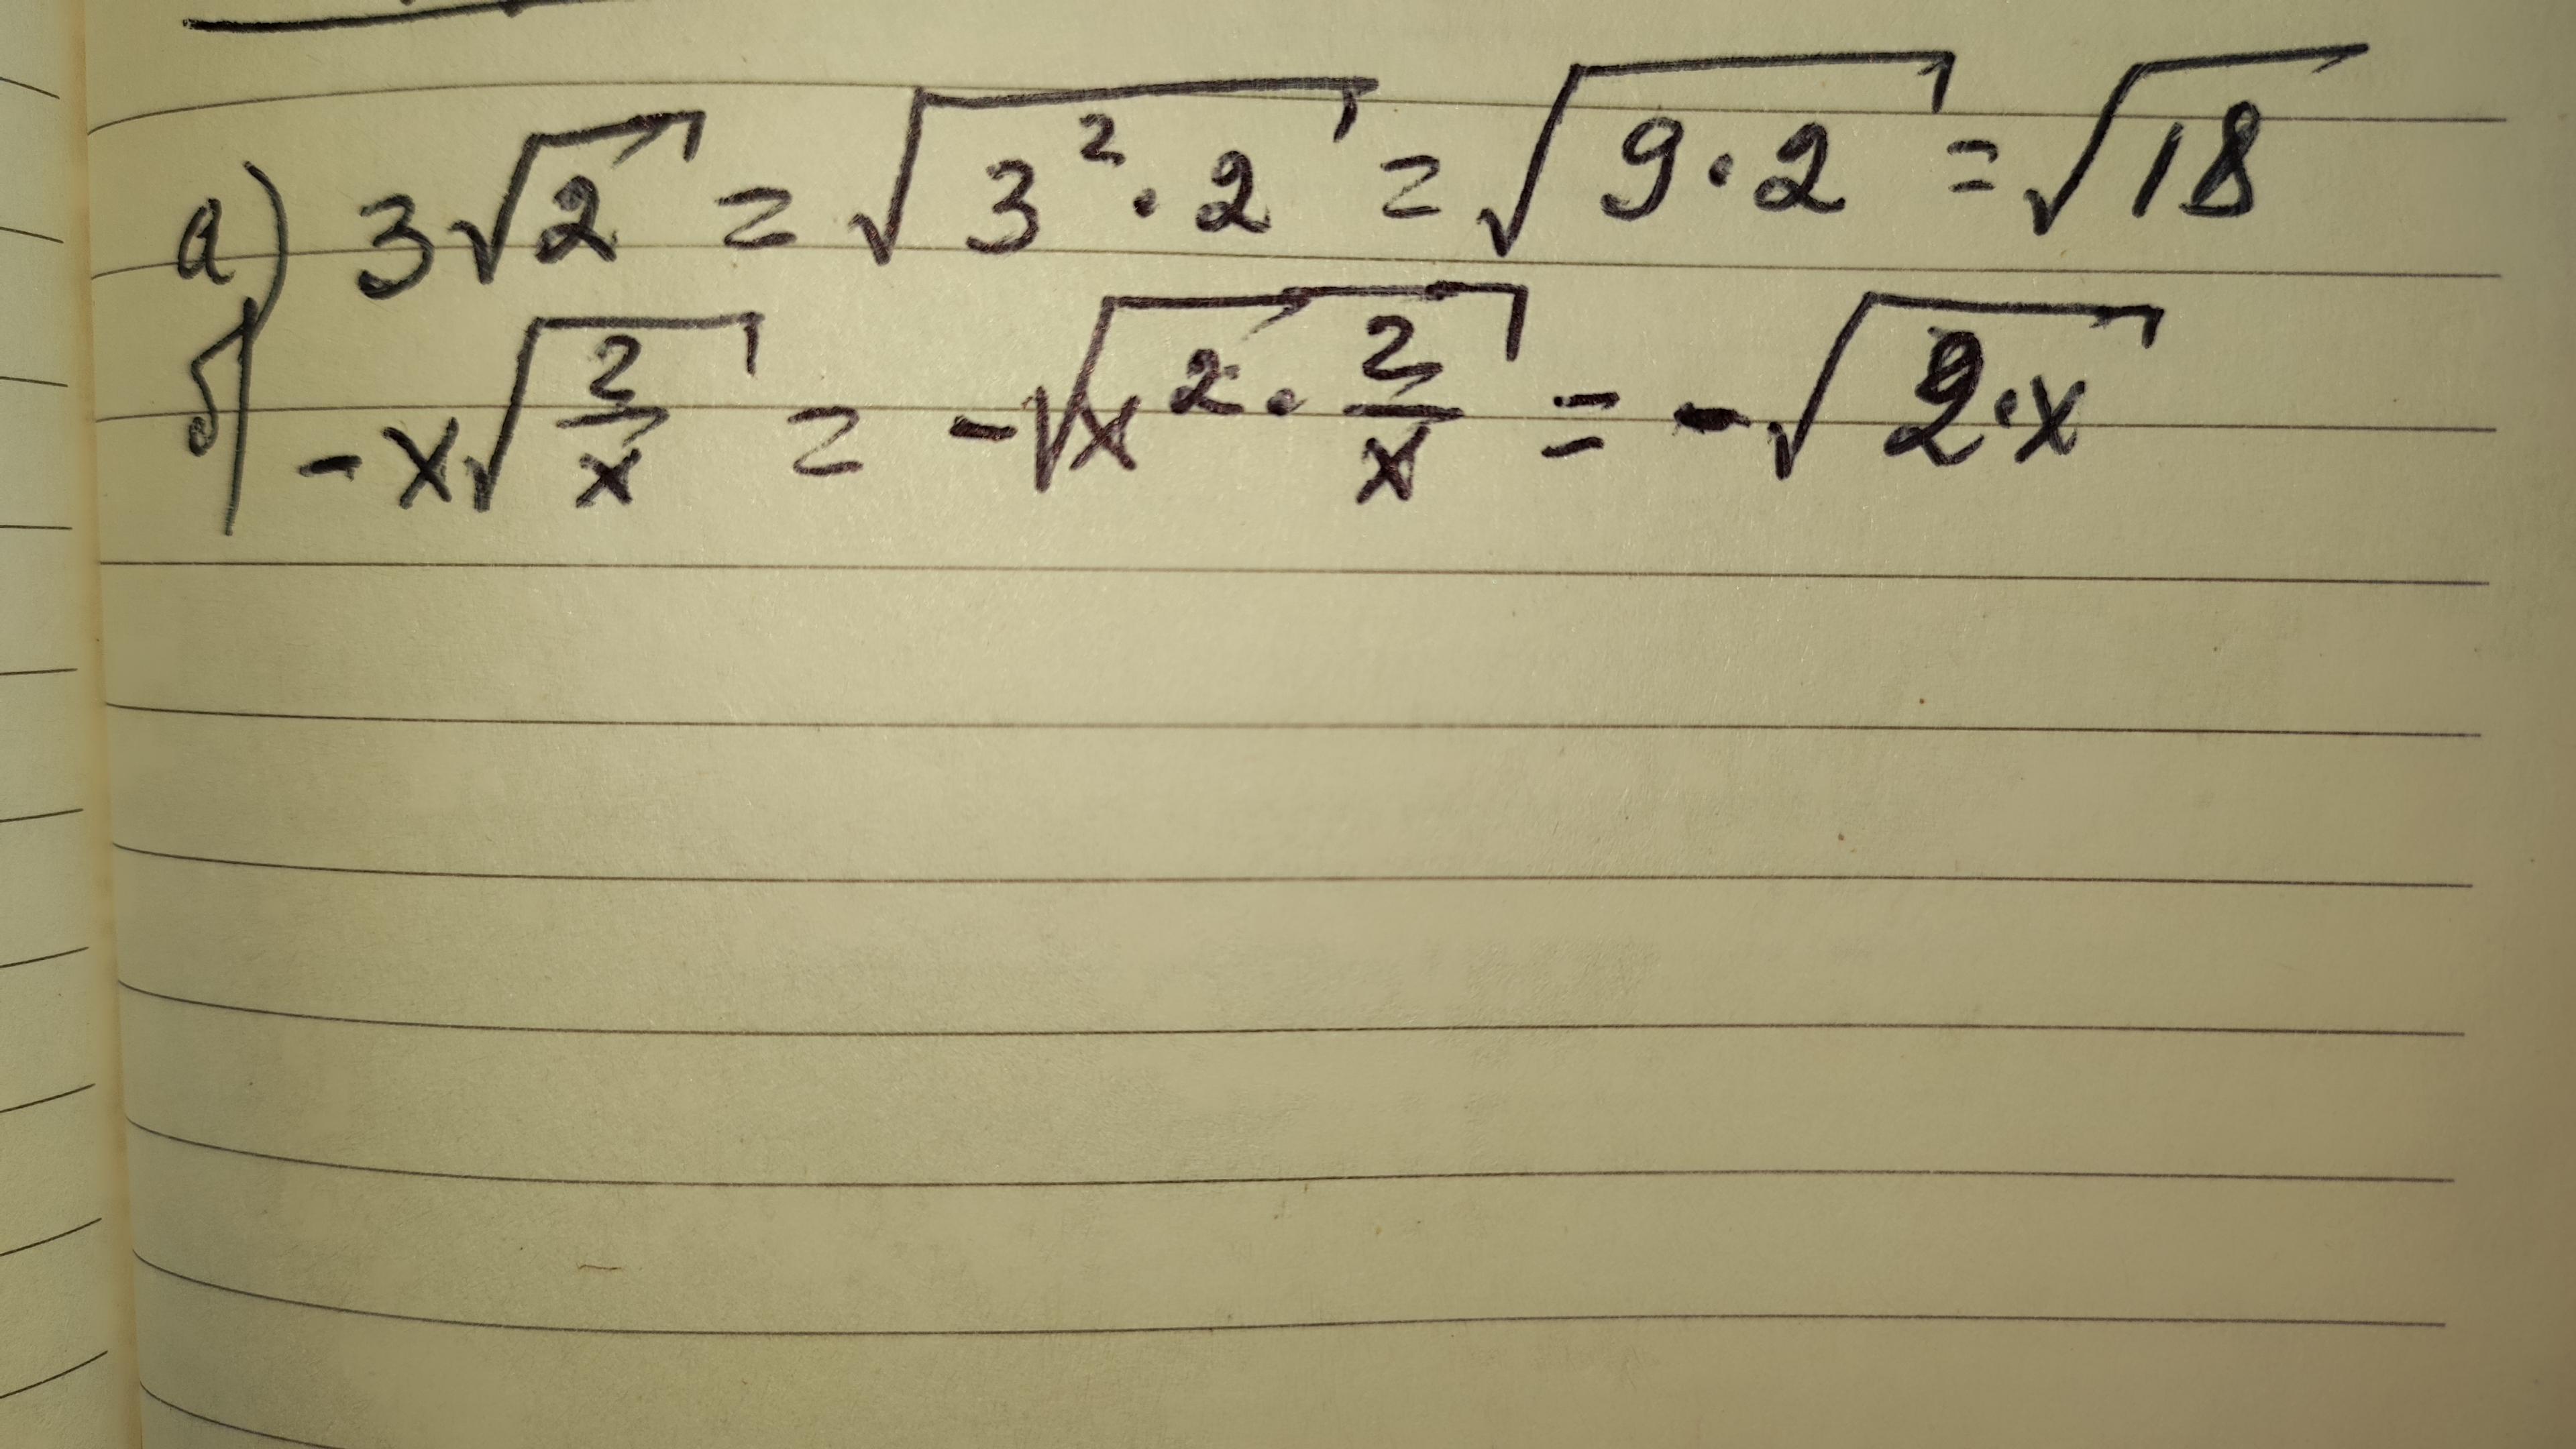 а) 3√2 = √(3² · 2) = √(9 · 2) = √18
б) -x√(2/x) = -√(x² · 2/x) = -√(2·x)